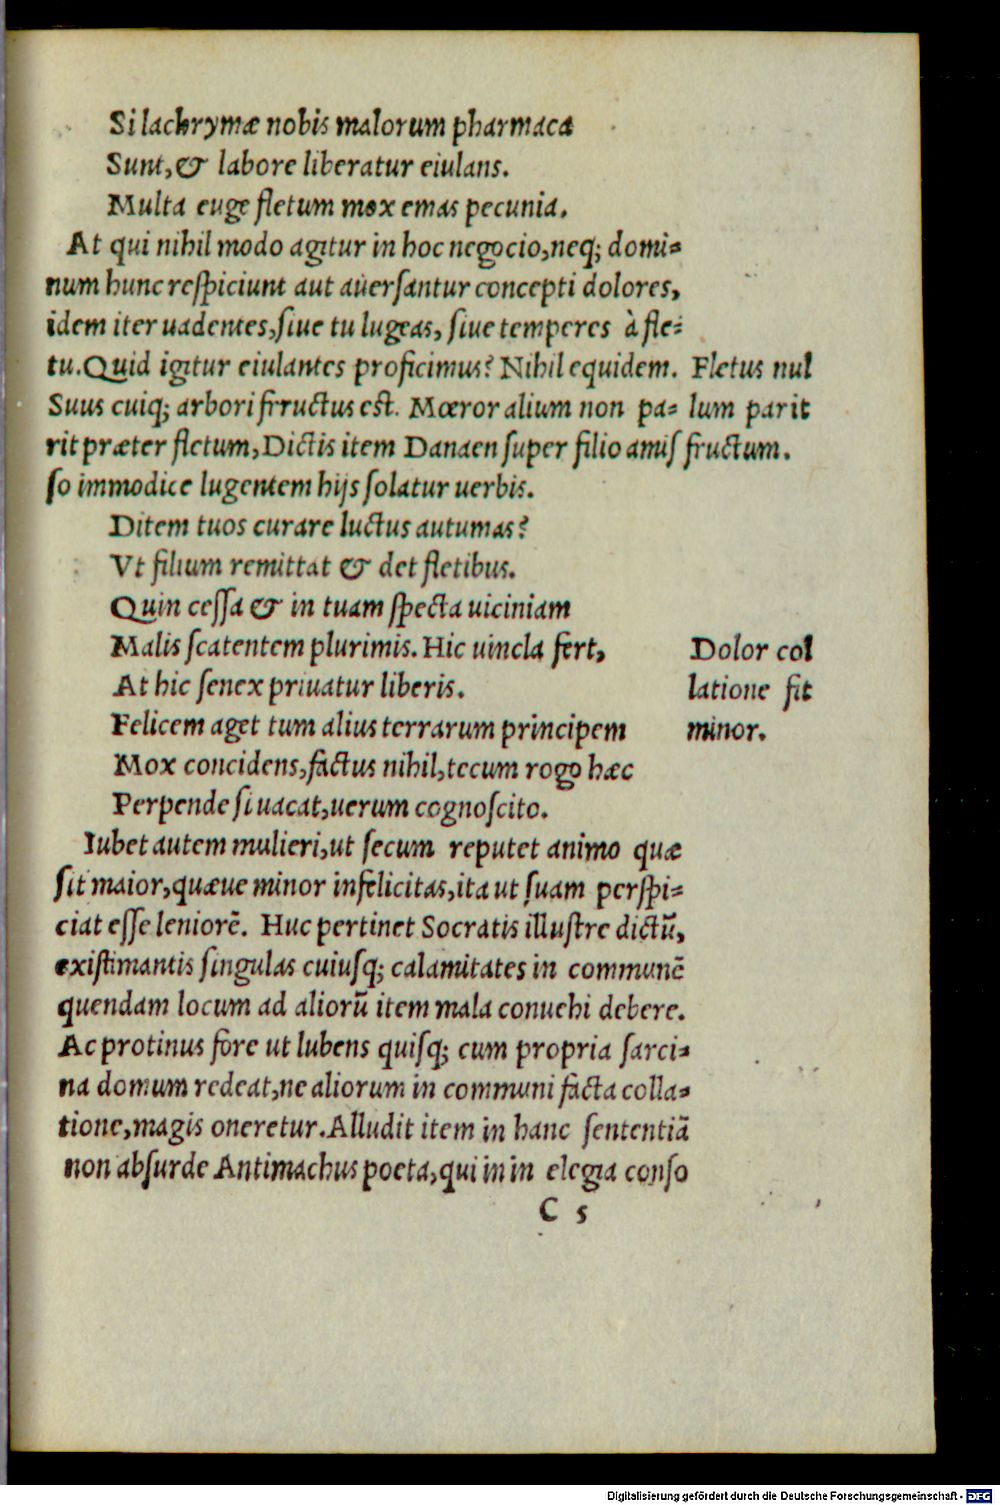 Si lachrymæ nobis malorum pharmaca
Sunt, & labore liberatur eiulans.
Multa euge fletum mox emas pecunia.
At qui nihil modo agitur in hoc negocio, neq; domi-
num hunc respiciunt aut auersantur concepti dolores,
idem iter uadentes, siue tu lugeas, siue temperes à fle-
tu. Quid igitur eiulantes proficimus? Nihil equidem.
Suus cuiq; arbori frructus est. Mœror alium non pa-
rit præter fletum, Dictis item Danaen super filio amis
so immodice lugentem hijs solatur uerbis.
Fletus nul
lum parit
fructum.
Ditem tuos curare luctus autumas?
Vt filium remittat & det fletibus.
Quin cessa & in tuam specta uiciniam
Malis scatentem plurimis. Hic uincla fert,
At hic senex priuatur liberis.
Felicem aget tum alius terrarum principem
Mox concidens, factus nihil, tecum rogo hæc
Perpende si uacat, uerum cognoscito.
Dolor col
latione fit
minor.
Iubet autem mulieri, ut secum reputet animo quæ
sit maior, quæue minor infelicitas, ita ut suam perspi-
ciat esse leniorē. Huc pertinet Socratis illustre dictū,
existimantis singulas cuiusq; calamitates in communē
quendam locum ad aliorū item mala conuehi debere.
Ac protinus fore ut lubens quisq; cum propria sarci-
na domum redeat, ne aliorum in communi facta colla-
tione, magis oneretur. Alludit item in hanc sententiā
non absurde Antimachus poeta, qui in in elegia conso
C 5
Digitalisierung gefördert durch die Deutsche Forschungsgemeinschaft - DFG